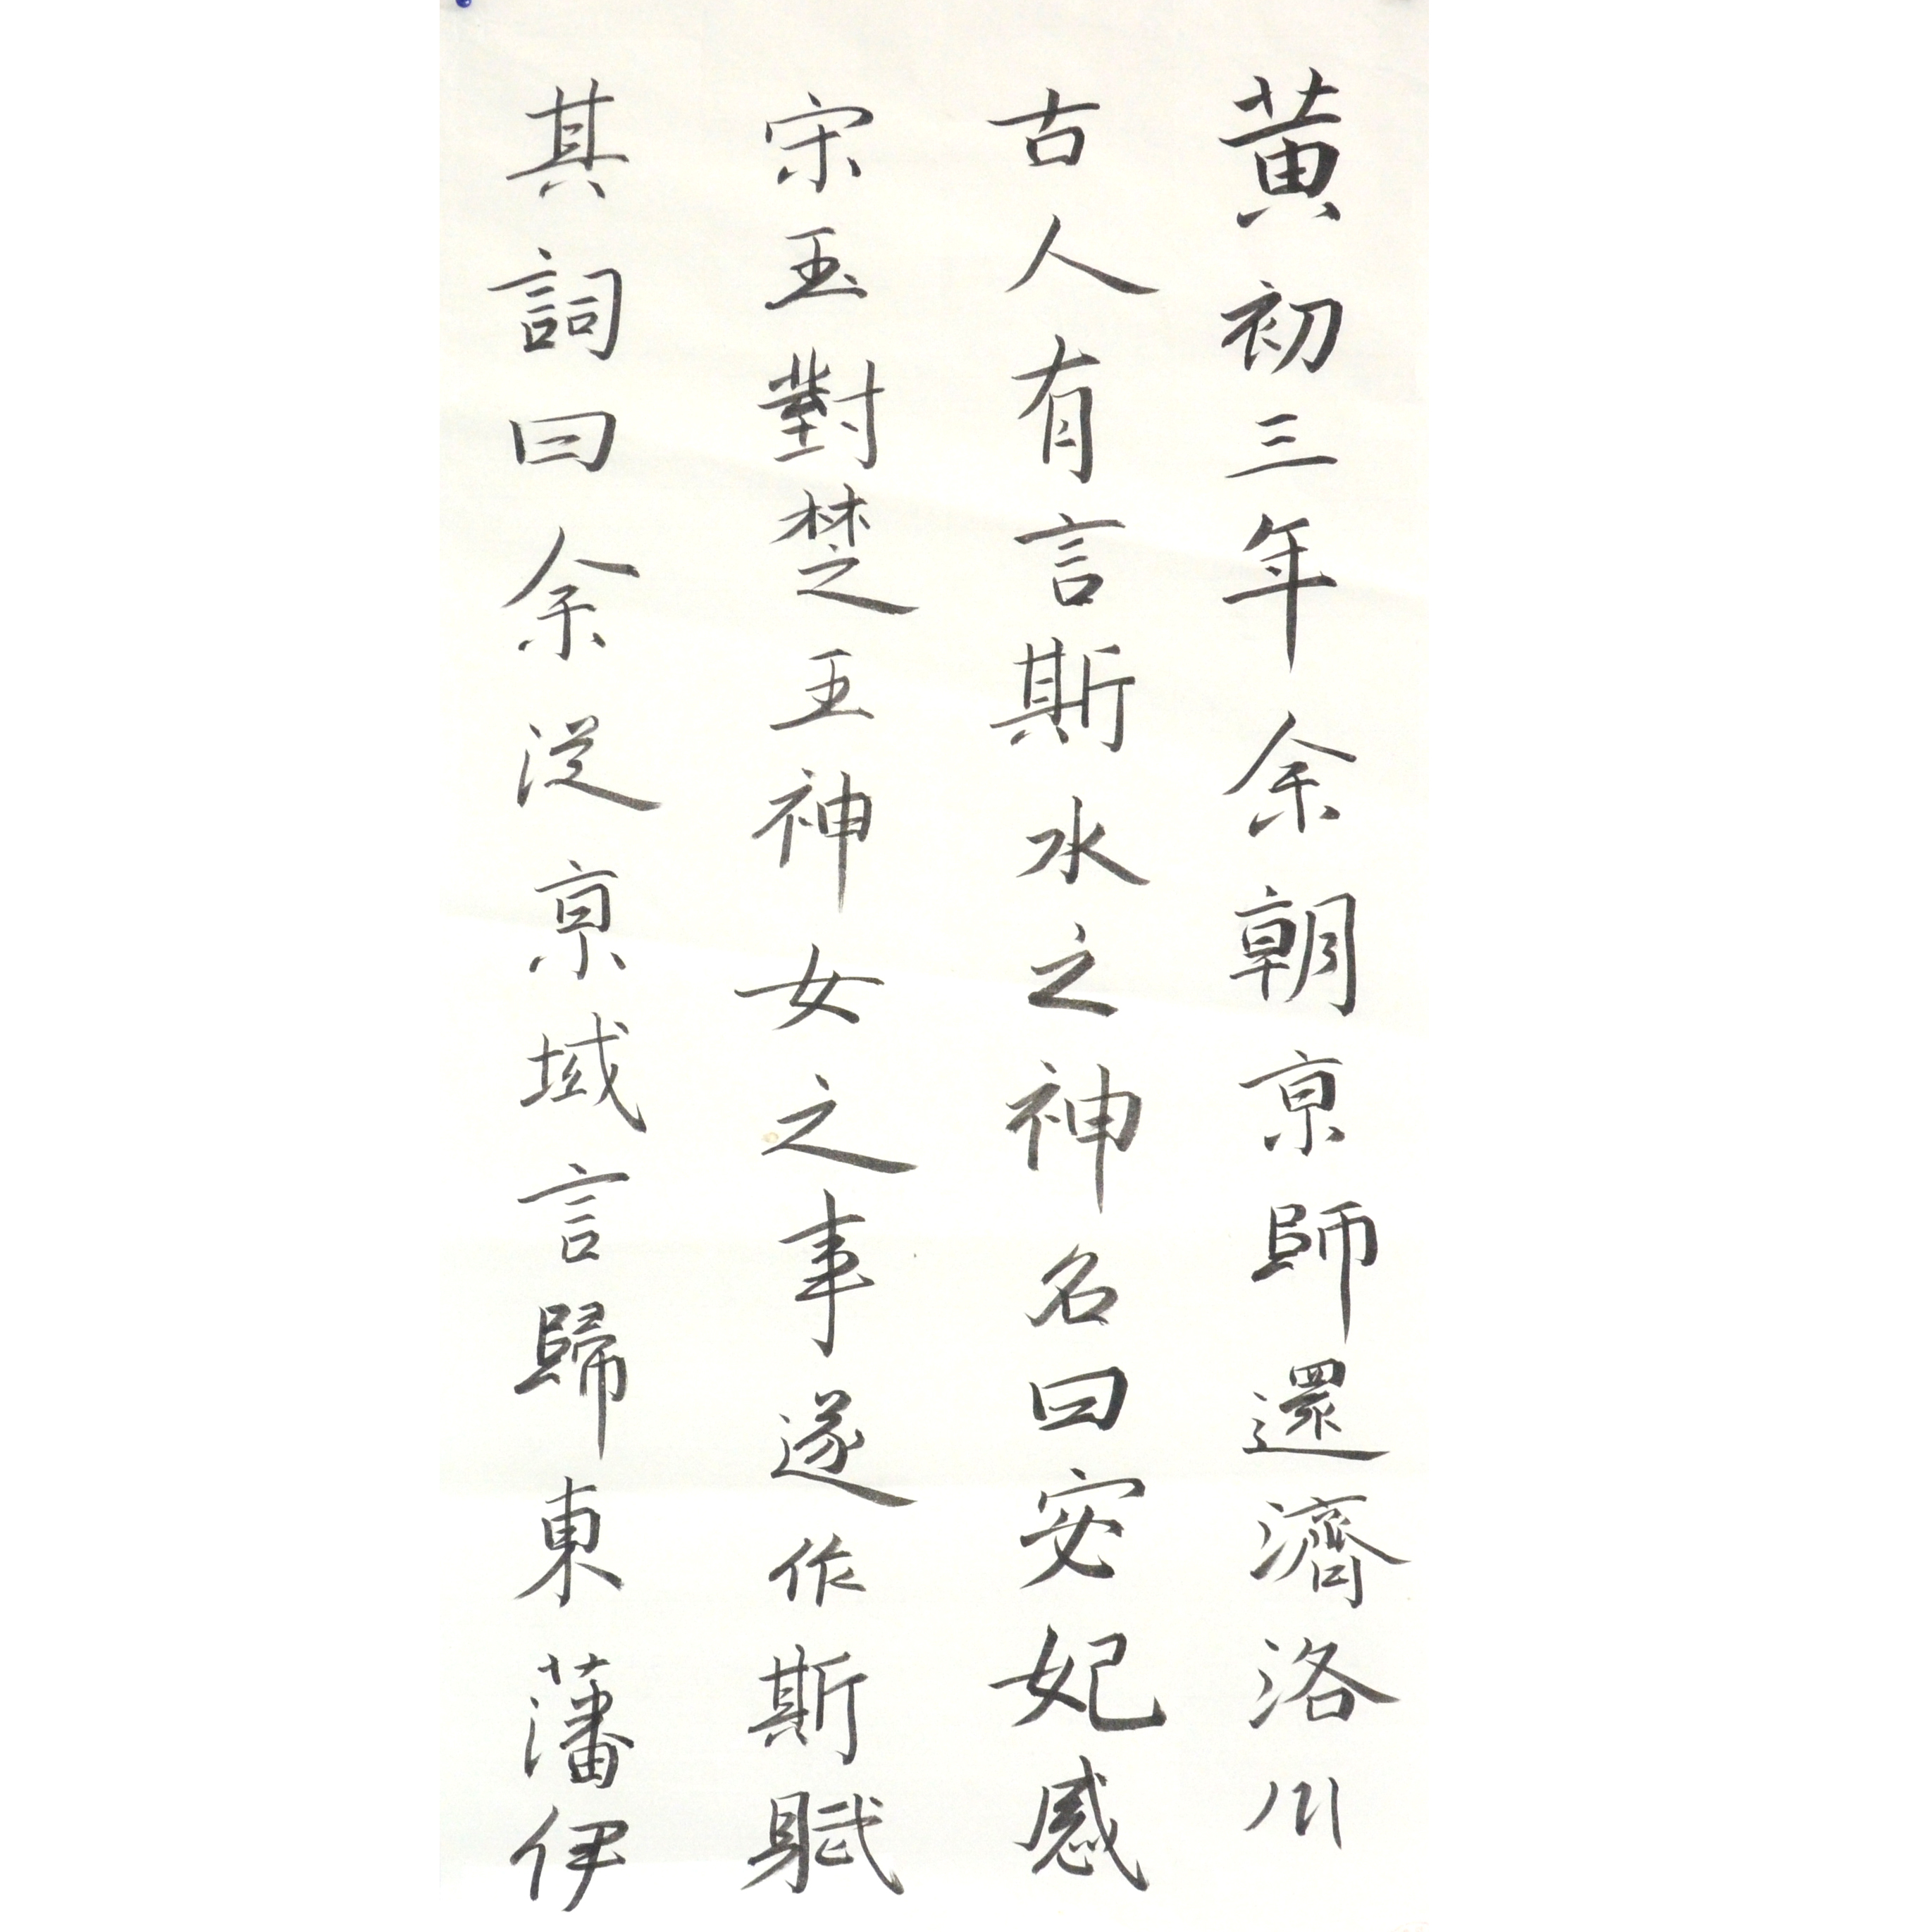 黄初三年余朝京師還濟洛川
古人有言斯水之神名曰宓妃感
宋玉對楚王神女之事遂作斯賦
其詞曰余從京域言歸東藩伊